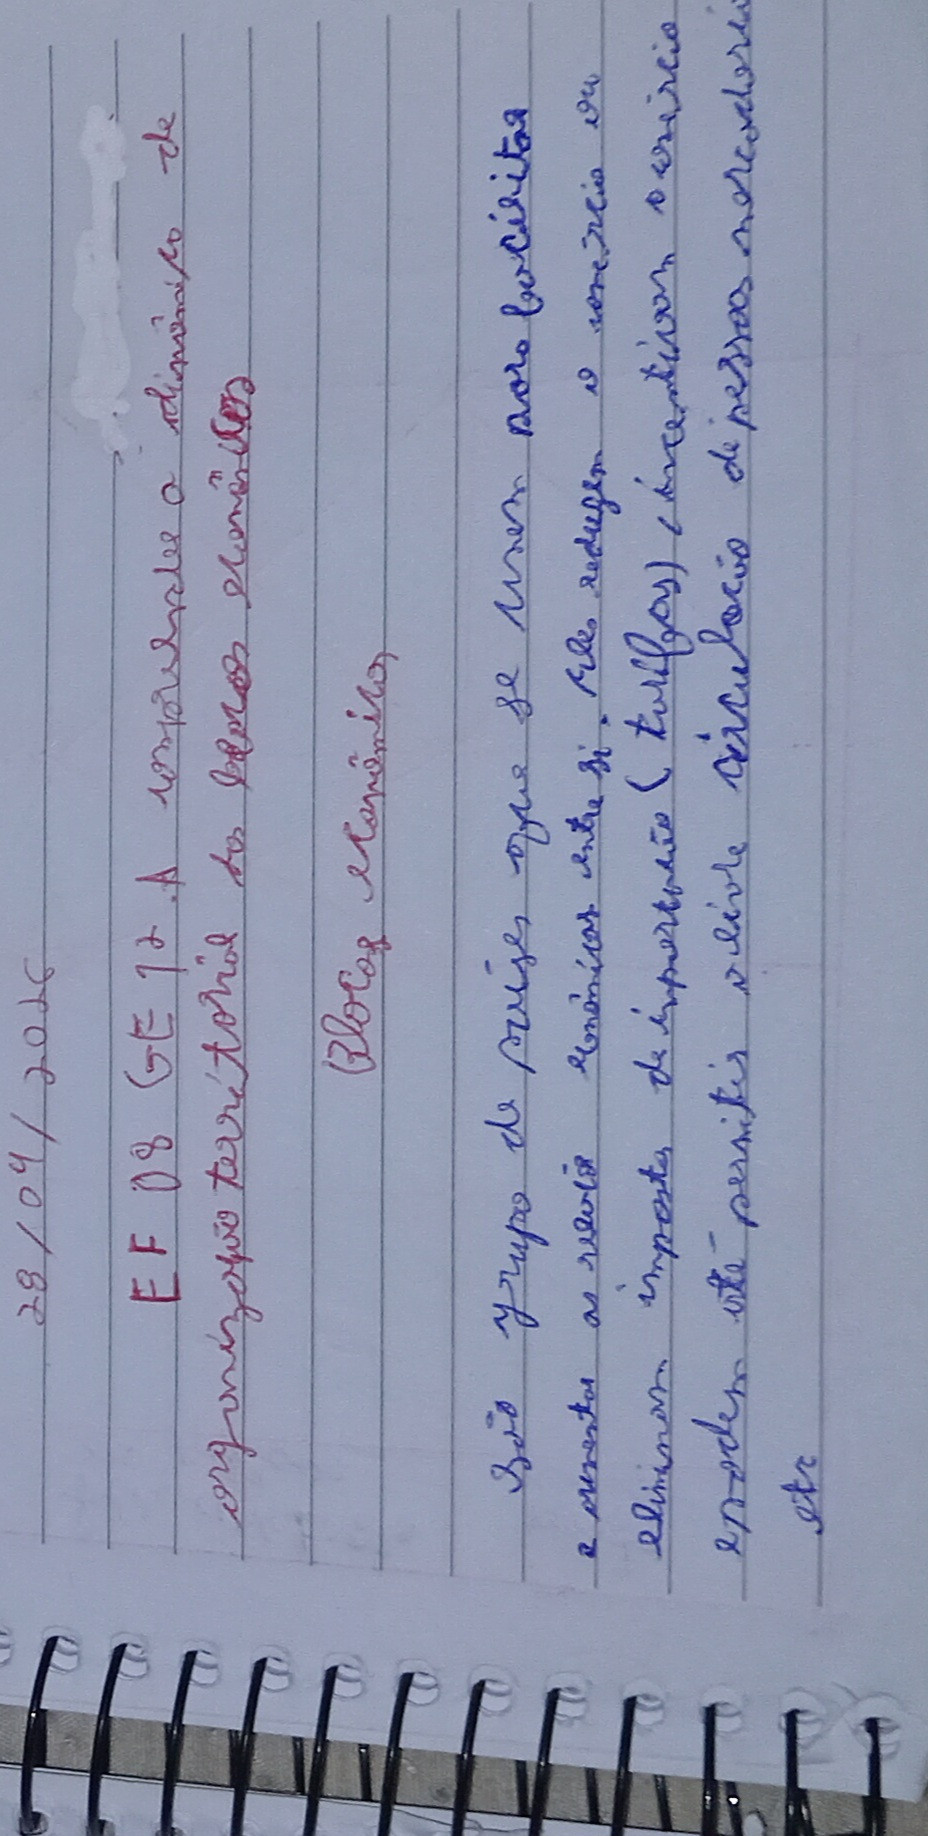 28/04/2026
EF 08 GE 12. A compreender a dinâmica de
organização territorial dos blocos econômicos
Blocos econômicos
São grupo de países que se unem para facilitar
e aumentar as relações econômicas entre si. Eles reduzem o comércio ou
eliminam impostos de importação (tarifas), incentivam o comércio
e podem até permitir a livre circulação de pessoas, mercadorias
etc